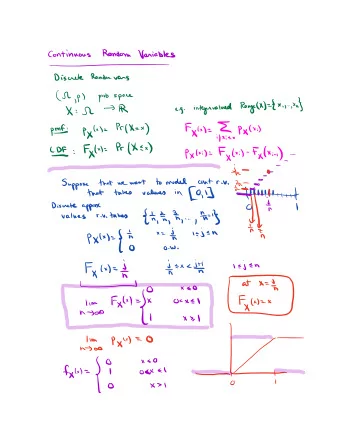 Continuous Random Variables
Discrete Random vars
(Ω, p) prob space
X: Ω → ℝ e.g. integer valued Range(X)={x₁,..,xₙ}
pmf: p_X(x)= Pr(X=x) F_X(x)= Σ_{i: xᵢ≤x} p_X(xᵢ)
CDF: F_X(x)= Pr(X≤x) p_X(xᵢ)= F_X(xᵢ)-F_X(xᵢ₋₁)
Suppose that we want to model cont r.v.
that takes values in [0,1]
Discrete approx
values r.v. takes {1/n, 2/n, 3/n, ..., n-1/n}
0 1/n 2/n 1
p_X(x)= { 1/n x= j/n 1≤j≤n
0 o.w.
F_X(x)= j/n j/n ≤x< j+1/n 1≤j≤n
lim n→∞ F_X(x)= { 0 x≤0
x 0<x≤1
1 x≥1
at x= j/n
F_X(x)=x
lim n→∞ p_X(x) = 0
f_X(x)= { 0 x<0
1 0≤x≤1
0 x>1
0 1